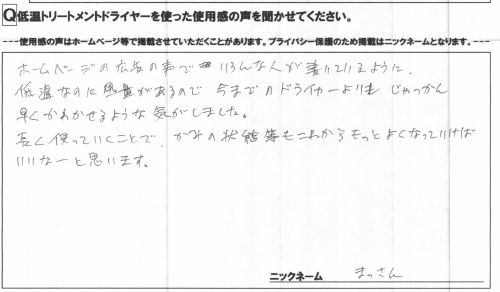 Q低温トリートメントドライヤーを使った使用感の声を聞かせてください。
----使用感の声はホームページ等で掲載させていただくことがあります。プライバシー保護のため掲載はニックネームとなります。---
ホームページの広告の声で いろんな人が書いているように、
低温なのに風量があるので 今までのドライヤーよりも じゃっかん
早くかわかせるような気がしました。
長く使っていくことで、かみの状態等もこれからもっとよくなっていけば
いいなーと思います。
ニックネーム まっさん